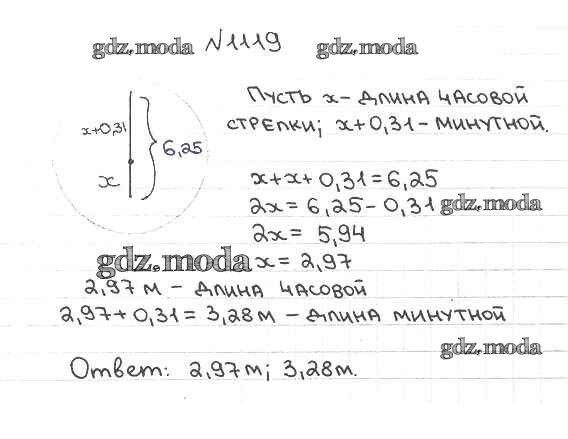 gdz.moda №1119 gdz.moda
Пусть x - длина часовой
x+0,31 стрелки; x+0,31 - минутной.
6,25
x
x+x+0,31=6,25
2x=6,25-0,31 gdz.moda
2x=5,94
gdz.moda x=2,97
2,97 м - длина часовой
2,97+0,31=3,28м - длина минутной
gdz.moda
Ответ: 2,97м; 3,28м.